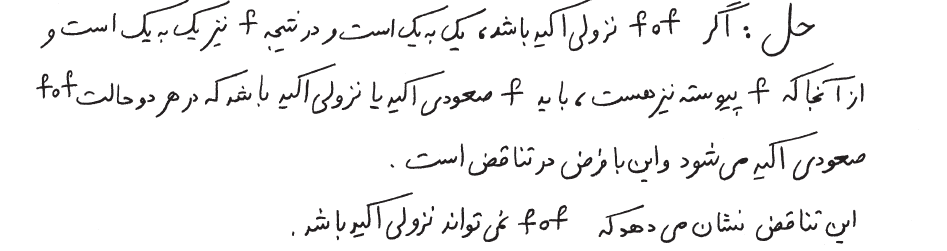 حل : اگر fof نزولی اکید باشد، یک به یک است و در نتیجه f نیز یک به یک است و
از آنجا که f پیوسته نیز هست، باید f صعودی اکید یا نزولی اکید باشد که در هر دو حالت fof
صعودی اکید می شود و این با فرض در تناقض است .
این تناقض نشان می دهد که fof نمی تواند نزولی اکید باشد .